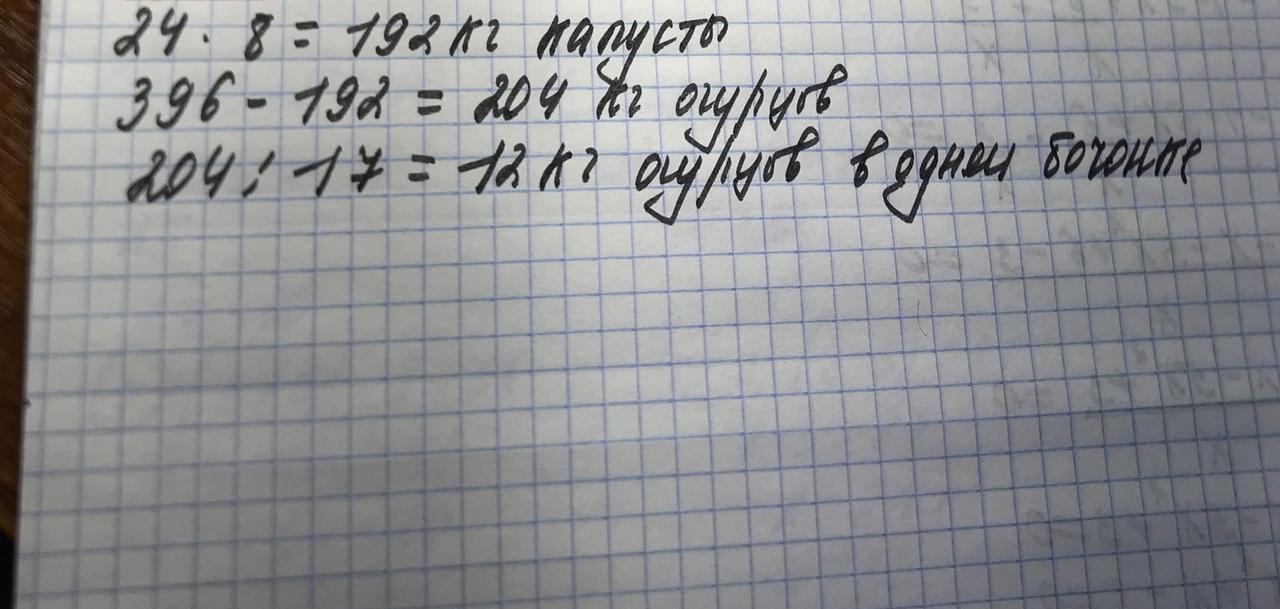 24 · 8 = 192 кг капусты
396 - 192 = 204 кг огурцов
204 : 17 = 12 кг огурцов в одном бочонке